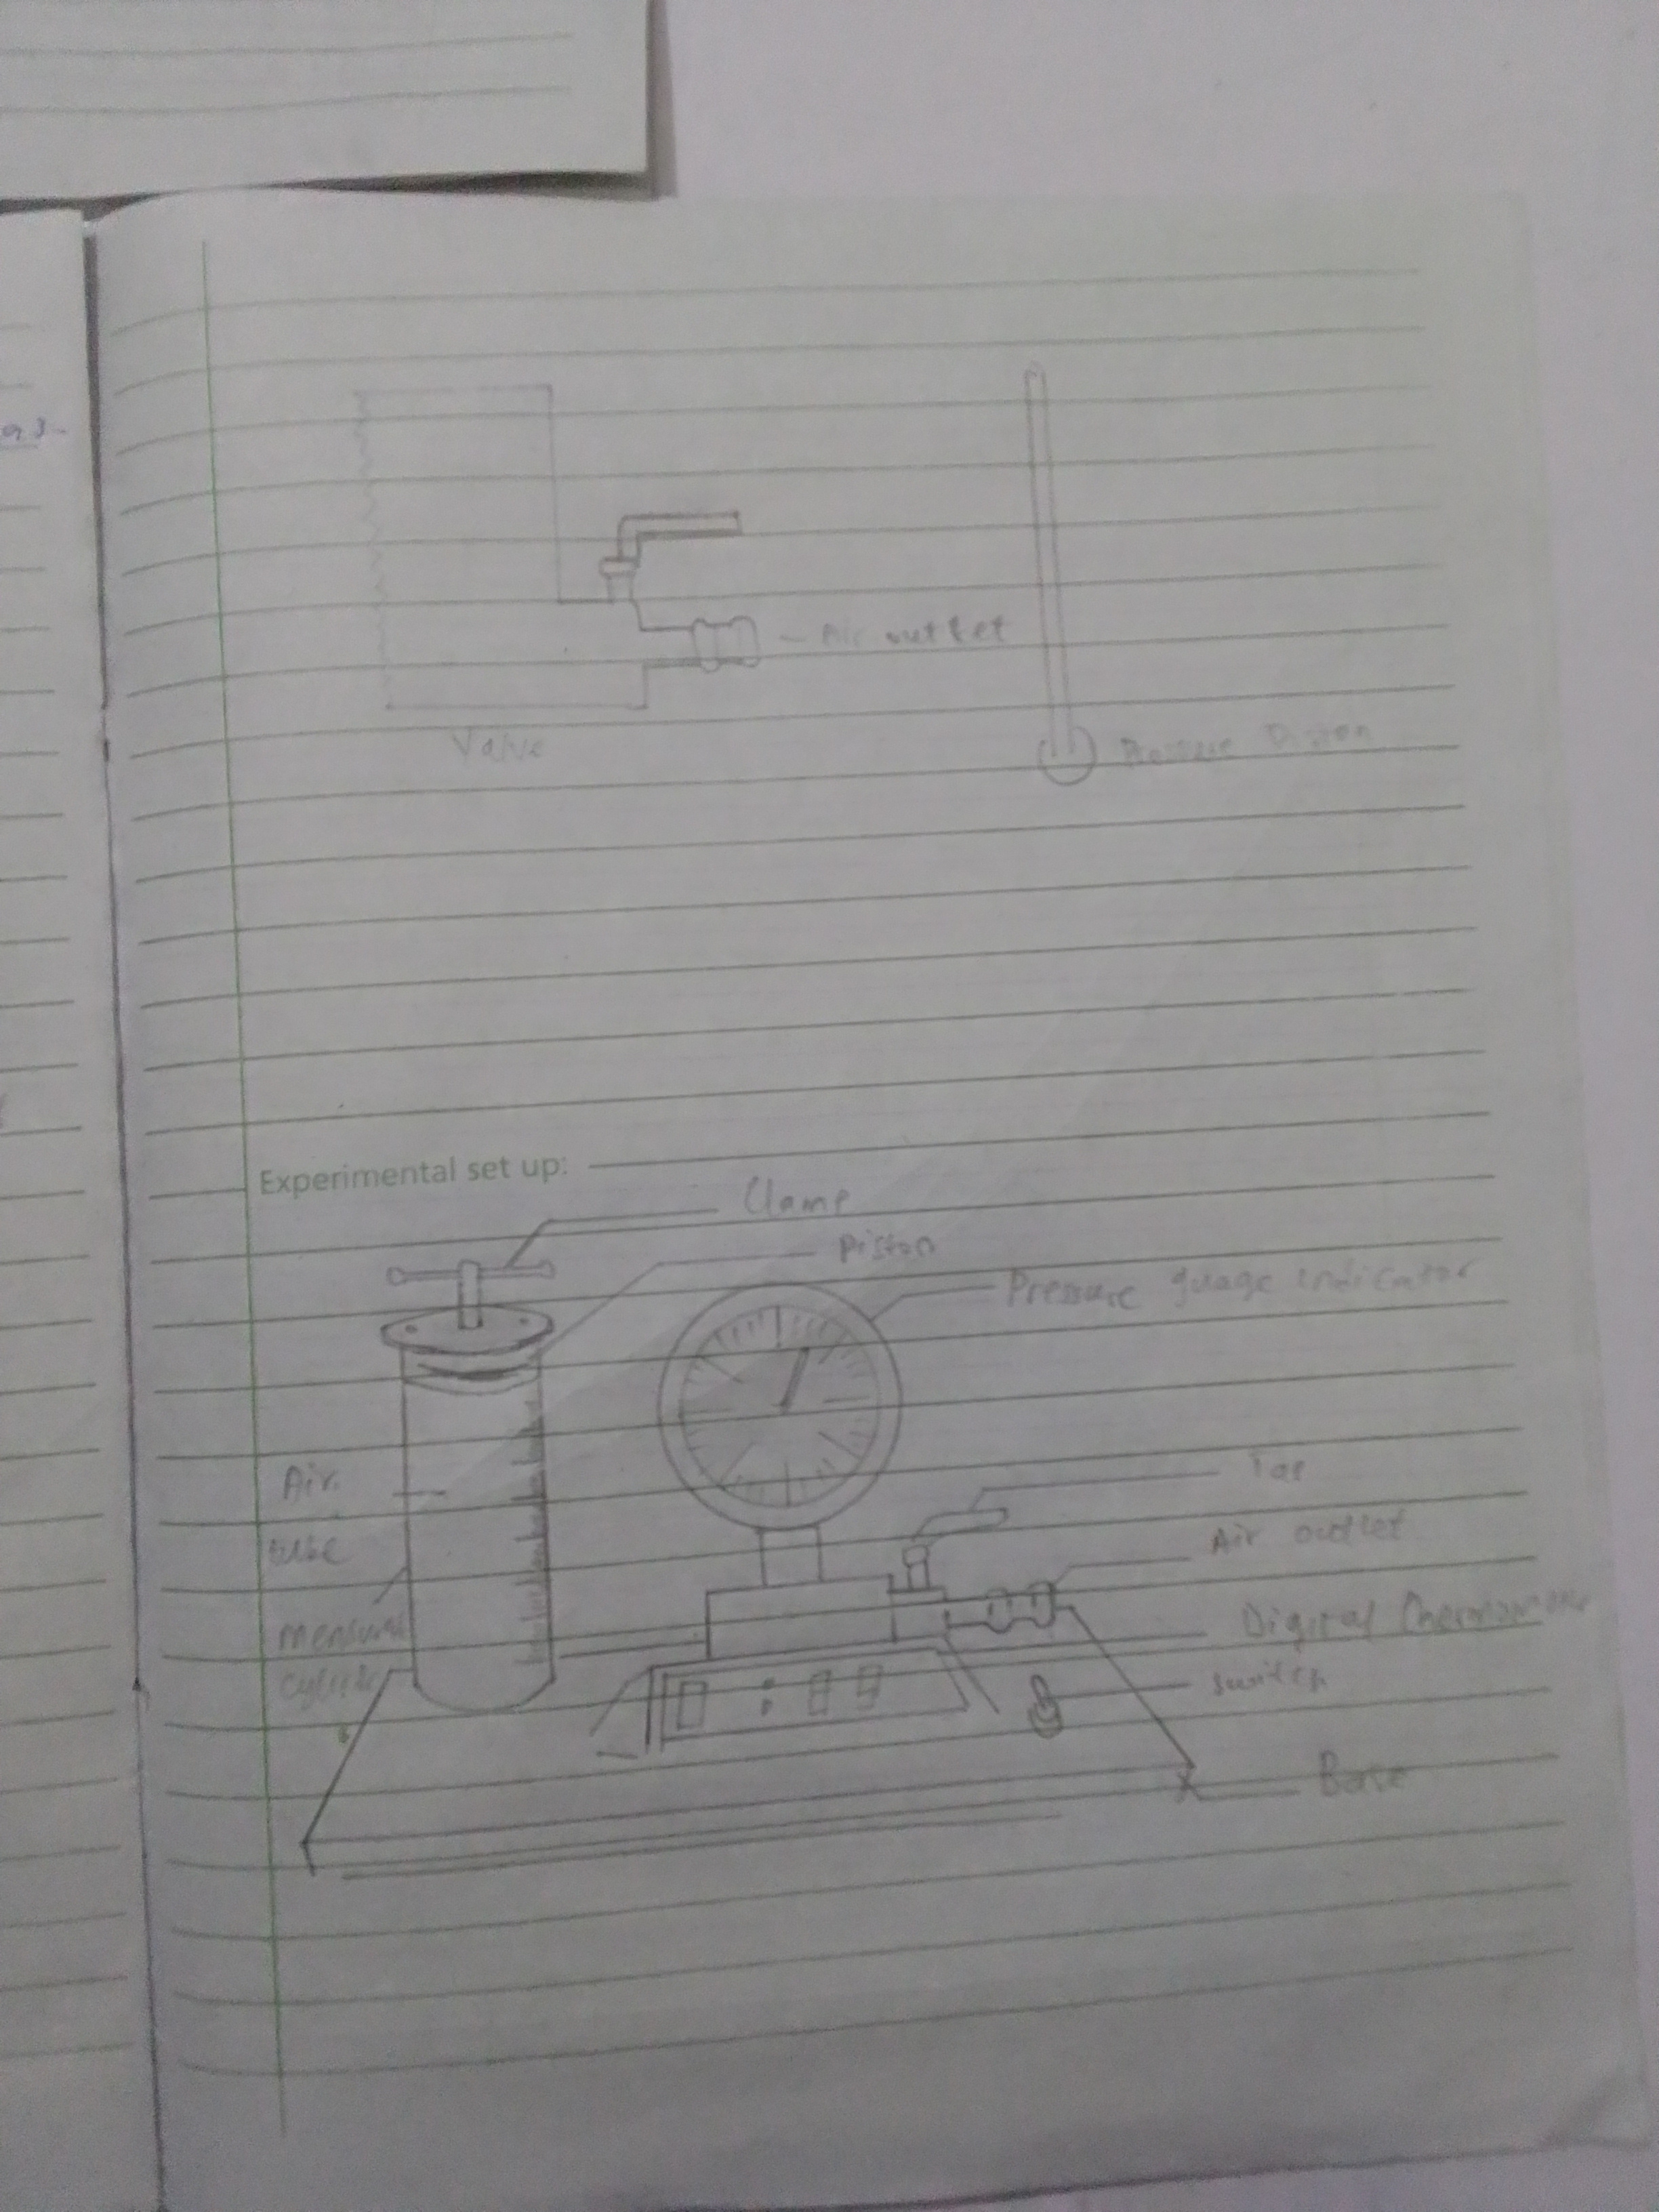 Air outlet
Valve
Pressure Piston
Experimental set up:
Clamp
Piston
Pressure guage indicator
Air
tube
Tap
Air outlet
Digital
switch
Base